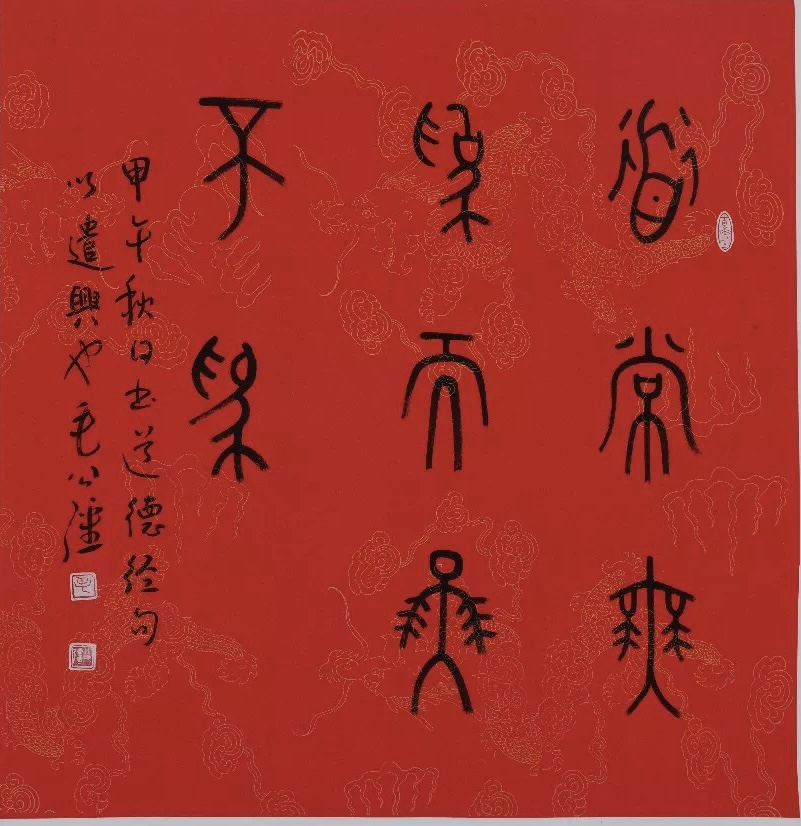 道常無
為而無
不為
甲午秋日书道德经句
以遣興也毛公